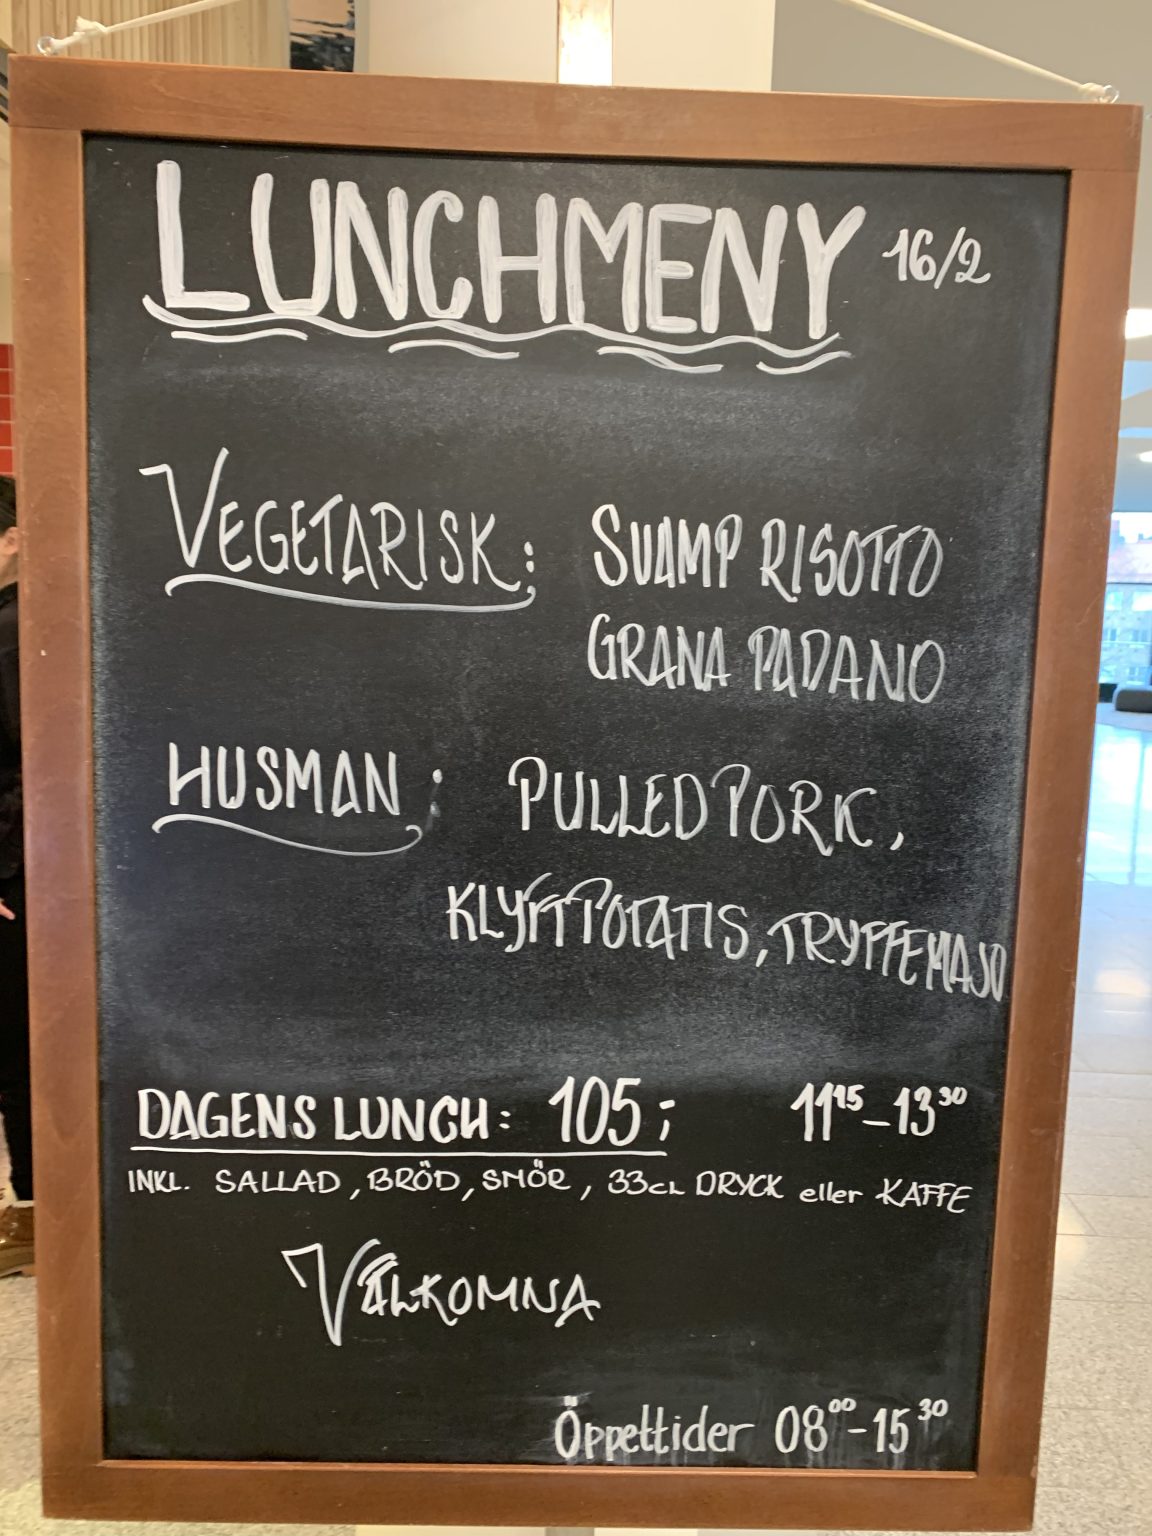 LUNCHMENY 16/2
VEGETARISK: SVAMP RISOTTO
GRANA PADANO
HUSMAN: PULLED PORK,
KLYFTPOTATIS, TRYFFEMAJO
DAGENS LUNCH: 105;  11¹⁵-13³⁰
INKL. SALLAD, BRÖD, SMÖR, 33CL DRYCK eller KAFFE
VÄLKOMNA
Öppettider 08⁰⁰-15³⁰